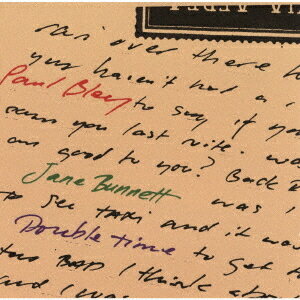 over there
you haven't had a
Paul Bley to say if yo
you last nite. wa
good to you? Back
Jane Bunnett was I
to see TAXI and it wa
Double time to get
BAD I think abo
and I was